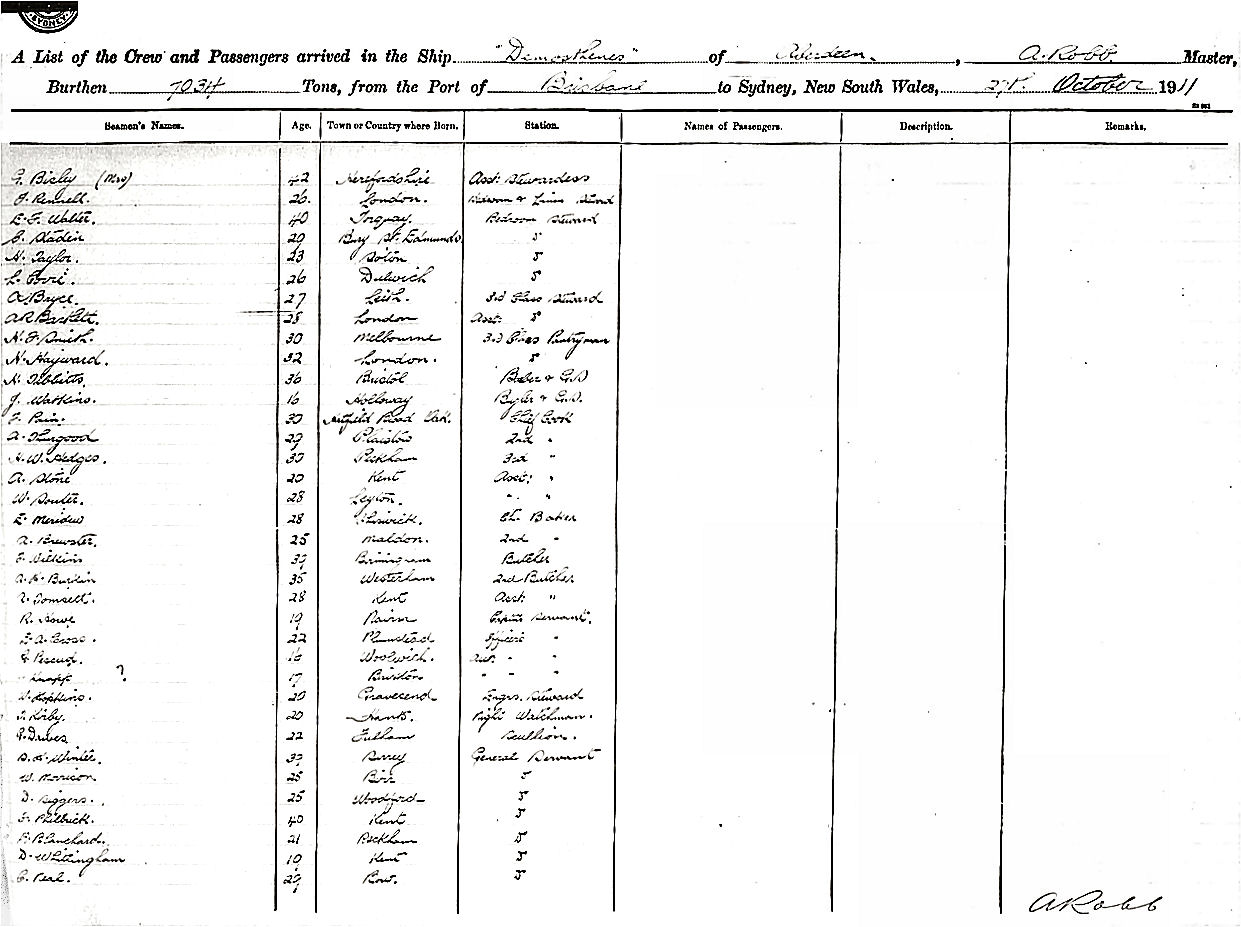 SYDNEY
A List of the Crew and Passengers arrived in the Ship "Demosthenes" of Aberdeen, A. Robb. Master,
Burthen 7034 Tons, from the Port of Brisbane to Sydney, New South Wales, 27th October 1911
Seamen's Names. Age. Town or Country where Born. Station. Names of Passengers. Description. Remarks.
G. Bisley (Mrs) 42 Herefordshire Asst: Stewardess
J. Rennell. 26. London. Bedroom & Linen Steward
E. F. Walter. 40 Torquay. Bedroom Steward
C. Staden 29 Bury St. Edmunds
H. Taylor. 23 Soton
26 Dulwich
A. Bryce. 27 Leith. 3rd Class Steward
A R Backett. 28 London Asst:
H. J. Smith. 30 Melbourne 3rd Class Pantryman
H. Hayward. 32 London.
H. Tibbitts. 36 Bristol
J. Watkins. 16 Holloway
F. Pain. 30 Chief Cook
A. Thurgood 29 Plaistow 2nd "
H. W. Hedges. 39 Peckham 3rd "
A. Stone 20 Kent Asst: "
W. Souter. 28 Leyton. " "
E. Meridew 28 Ch. Baker
A. Brewster. 25 Maldon. 2nd "
F. Wilkins 39 Birmingham Butcher
A. H. Burkin 35 Westerham 2nd Butcher
Tomsett. 28 Kent Asst. "
R. Howe 19 Nairn Captns Servant.
E. A. Cross. 22 Plumstead Officers "
Pescud. 16 Woolwich. Asst. " "
Knapp ? 17 Brixton " " "
W. Hopkins. 20 Gravesend Engrs. Steward
Kirby. 20 Hants. Night Watchman.
22 Fulham Scullion.
Winter. 39 General Servant
W. Morrison 25 Birr
D. Biggers. 25 Woodford
F. Philbrick. 40 Kent
P. Blanchard. 21 Peckham
D. Whittingham 19 Kent
C. Peal. 29 Bow.
A Robb